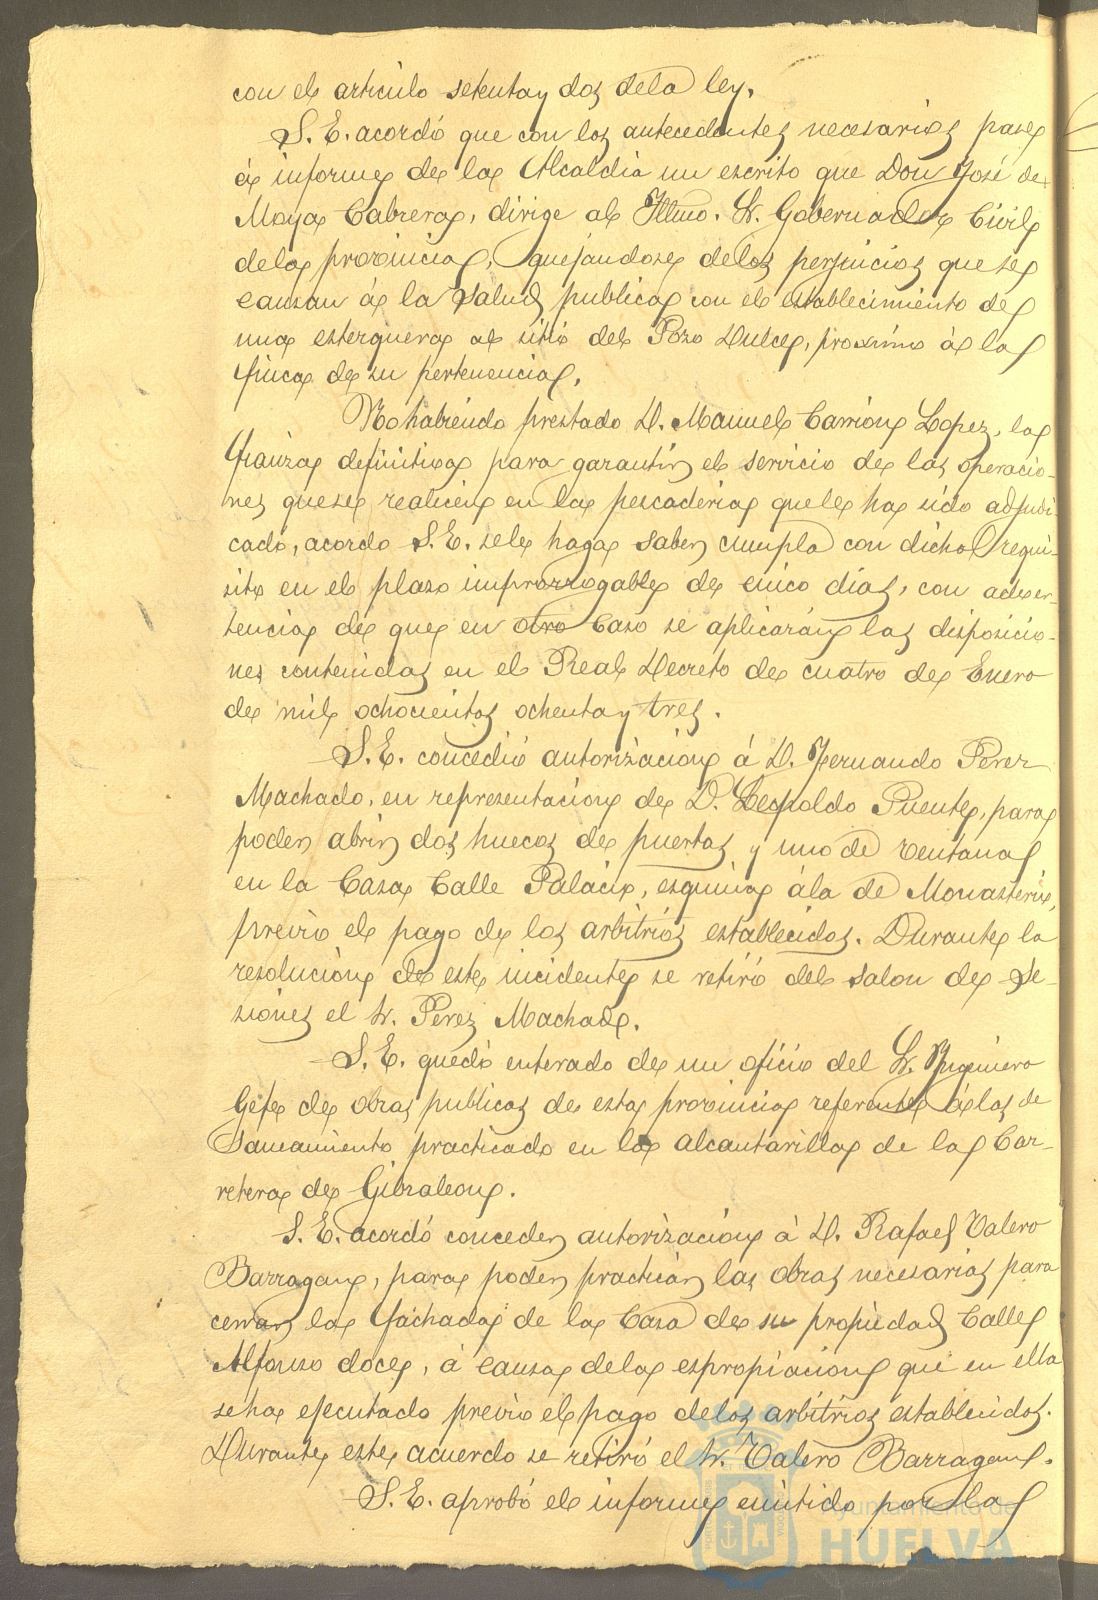 con el articulo setenta y dos de la ley.
S. E. acordó que con los antecedentes necesarios pase
á informe de la Alcaldia un escrito que Don José de
Moya Cabrera, dirige al Illmo. Sr. Gobernador Civil
de la provincia, quejandose de los perjuicios que se
causan á la salud publica con el establecimiento de
una esterquera al sitio del Pozo Dulce, proximo á la
finca de su pertenencia.
No habiendo prestado D. Manuel Carrion Lopez, la
fianza definitiva para garantir el servicio de las operacio-
nes que se realicen en la pescaderia que le ha sido adjudi-
cado, acordo S. E. se le haga saber cumpla con dicho requi-
sito en el plazo improrrogable de cinco dias, con adver-
tencia de que en otro caso se aplicarán las disposicio-
nes contenidas en el Real Decreto de cuatro de Enero
de mil ochocientos ochenta y tres.
S. E. concedió autorización á D. Fernando Perez
Machado, en representación de D. Leopoldo Puente, para
poder abrir dos huecos de puertas y uno de ventana
en la Casa Calle Palacio, esquina á la de Monasterio,
previo el pago de los arbitrios establecidos. Durante la
resolución de este incidente se retiró del salon de Se-
siones el Sr. Perez Machado.
S. E. quedó enterado de un oficio del Sr. Ingeniero
Gefe de obras publicas de esta provincia referente á las de
Saneamiento practicado en la alcantarilla de la Car-
retera de Gibraleon.
S. E. acordó conceder autorización á D. Rafael Valero
Barragan, para poder practicar las obras necesarias para
cerrar la fachada de la Casa de su propiedad Calle
Alfonso doce, á causa de la espropiacion que en ella
se ha ejecutado previo el pago de los arbitrios establecidos.
Durante este acuerdo se retiró el Sr. Valero Barragan.
S. E. aprobó el informe emitido por la
Ayuntamiento de
HUELVA